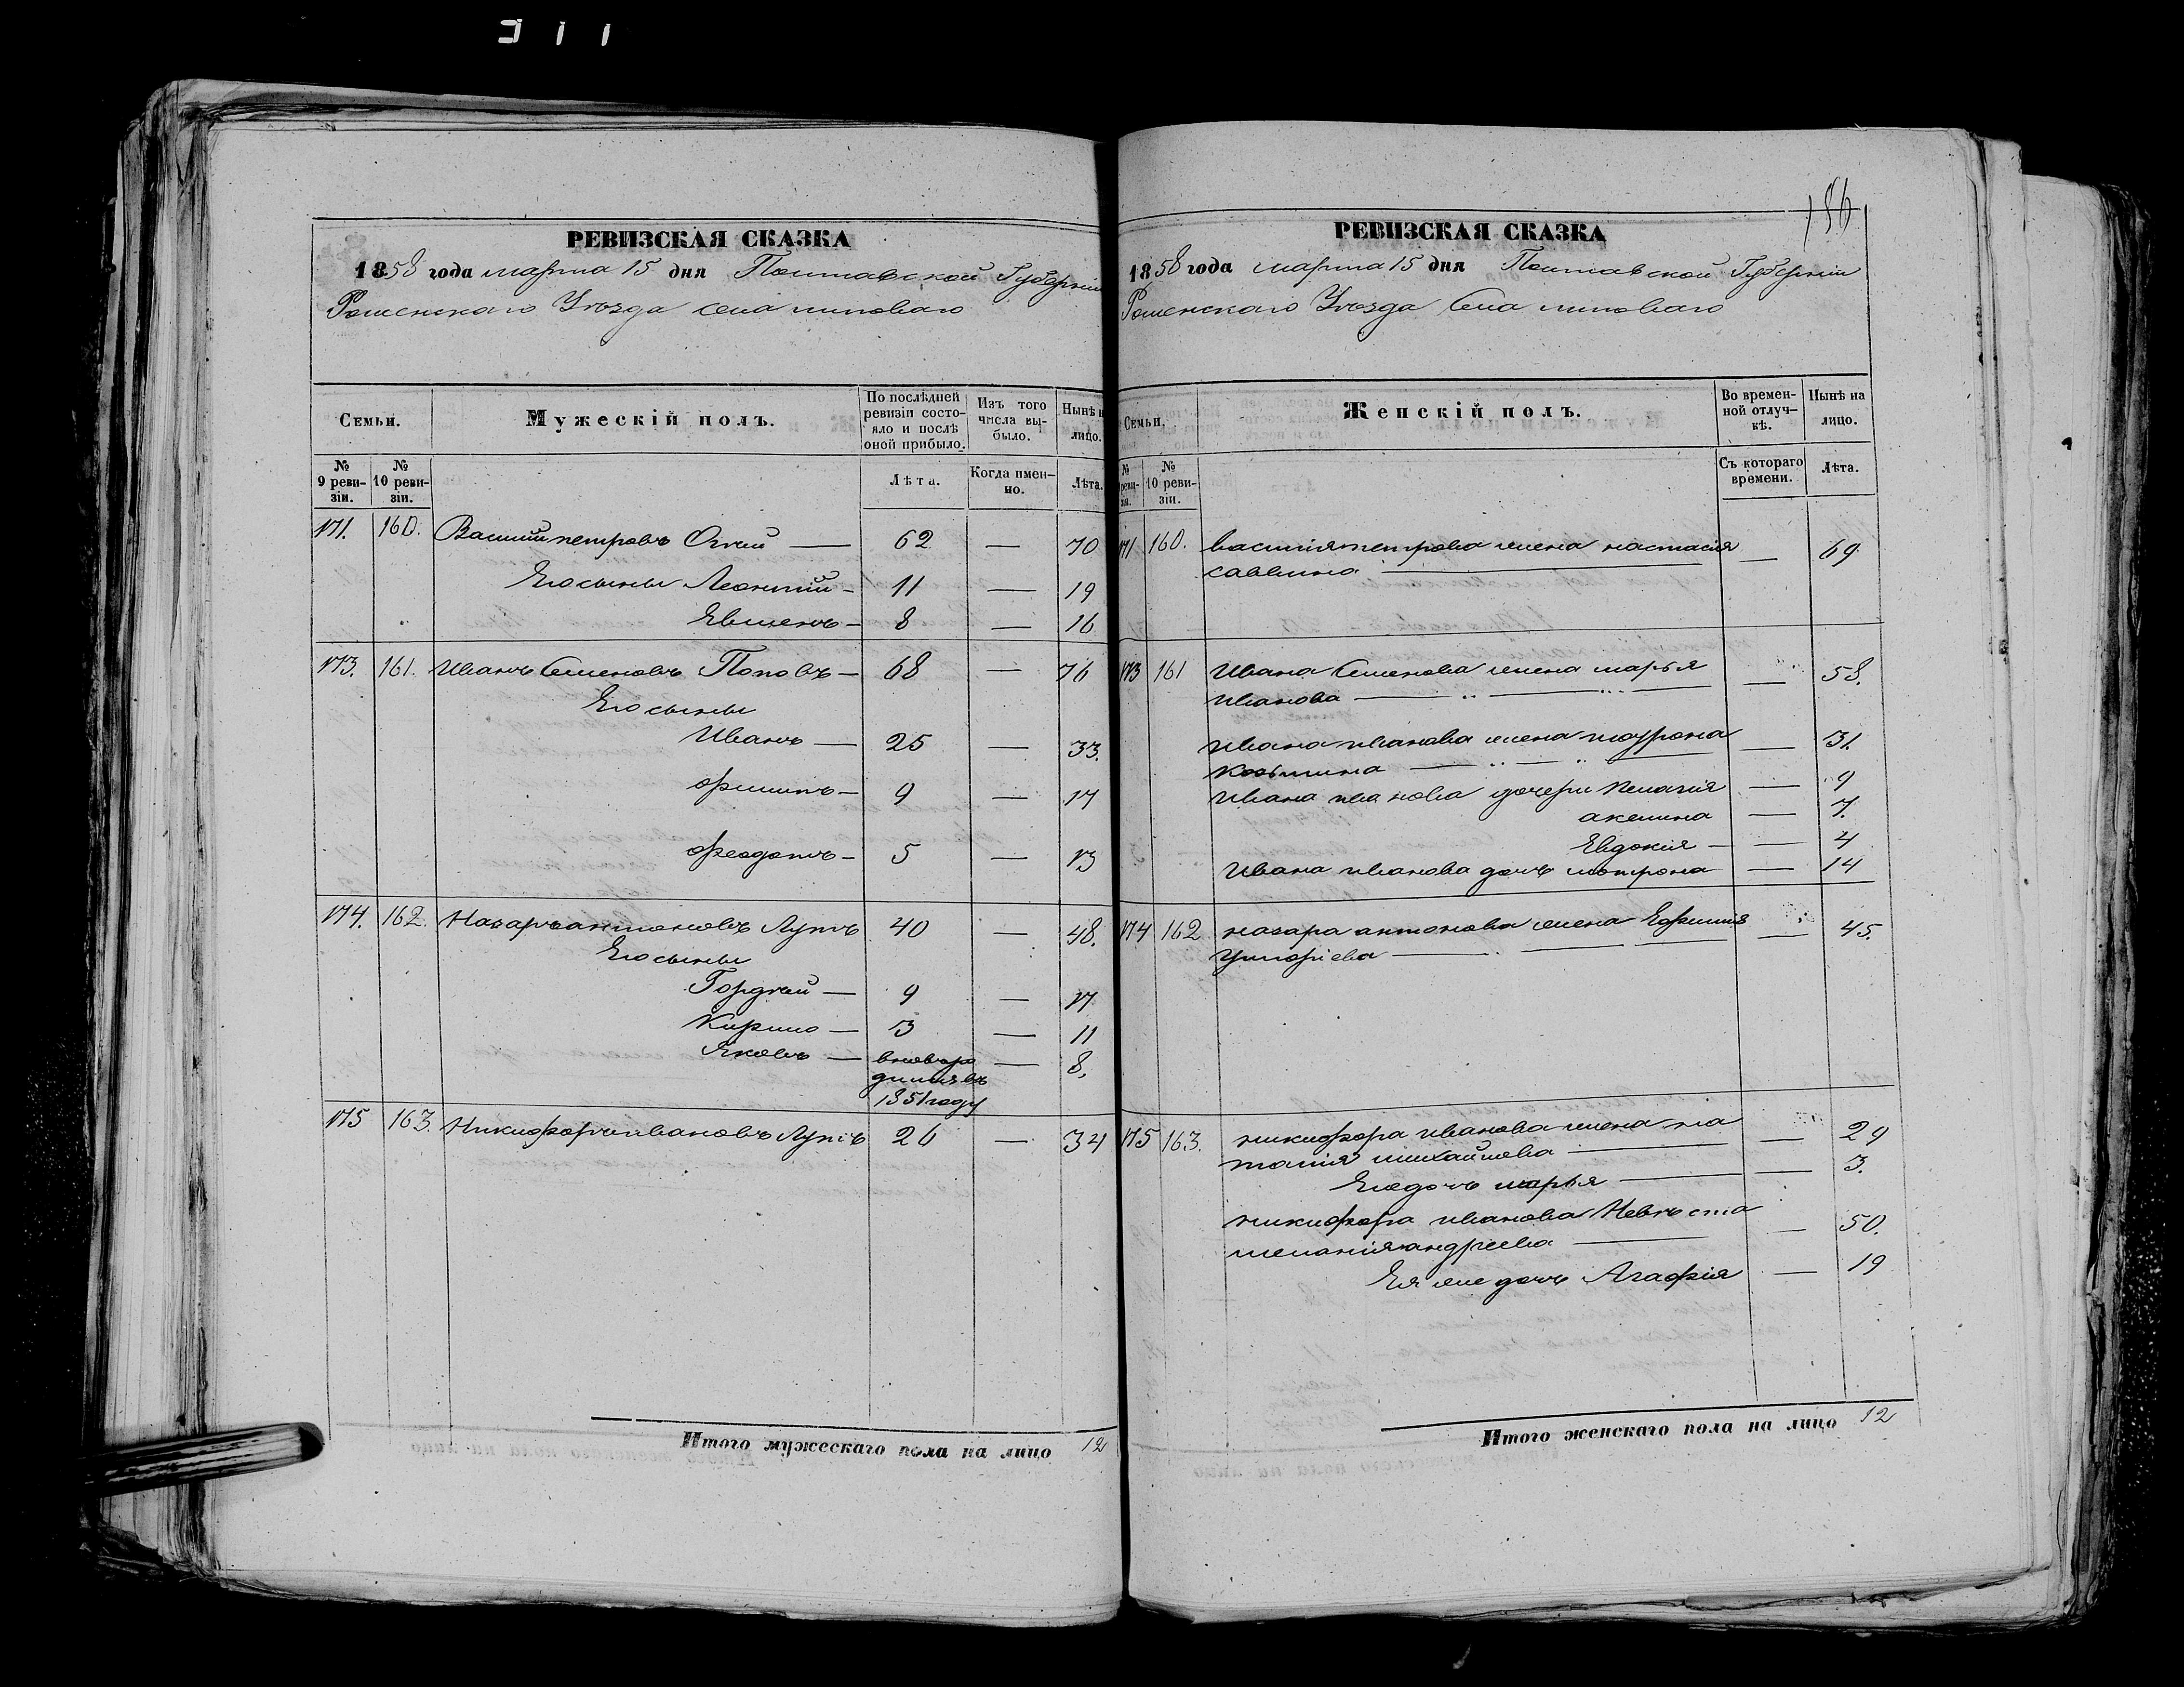 156
РЕВИЗСКАЯ СКАЗКА
1858 года марта 15 дня Полтавской Губерніи
Роменского Уѣзда села липоваго
Семьи.
Мужескій полъ.
По послѣдней ревизіи состояло и послѣ оной прибыло.
Изъ того числа выбыло.
Нынѣ на лицо.
№ 9 ревизіи.
№ 10 ревизіи.
Лѣта.
Когда именно.
Лѣта.
171. 160. Василий петровъ — 62 — 70
Его сыны Леонтий — 11 — 19
Явменъ — 8 — 16
173. 161. Иванъ Семеновъ Поповъ — 68 — 76
Его сыны
Иванъ — 25 — 33.
филипъ — 9 — 17
феодотъ — 5 — 13
174. 162. Назаръ антоновъ Лупъ 40 — 48.
Его сыны
Гордѣй — 9 — 17
Кирило — 3 — 11
Яковъ — вновь ро — 8.
дился въ
1851 году
175 163. Никифоръ ивановъ Лупъ 26 — 34
Итого мужескаго пола на лицо 12
РЕВИЗСКАЯ СКАЗКА
1858 года марта 15 дня Полтавской Губерніи
Роменского Уѣзда Села липоваго
Семьи.
Женскій полъ.
Во временной отлучкѣ.
Нынѣ на лицо.
№ ревизіи.
№ 10 ревизіи.
Съ котораго времени.
Лѣта.
171 160. василія петрова жена настасія — 69.
саввина —
173 161 Ивана Семенова жена марья — 58.
иванова —
ивана иванова жена мотрона — 31.
козьмина —
ивана иванова дочери Пелагія — 9
акелина — 7.
Евдокія — 4
ивана иванова дочь мотрона — 14
174 162 назара антонова жена Ефимія — 45.
григоріева —
175 163. никифора иванова жена на — 29
талія михайлова —
Его дочь марья — 3.
никифора иванова Невѣста — 50.
меланія андреева —
Ея же дочь Агафія — 19
Итого женскаго пола на лицо 12